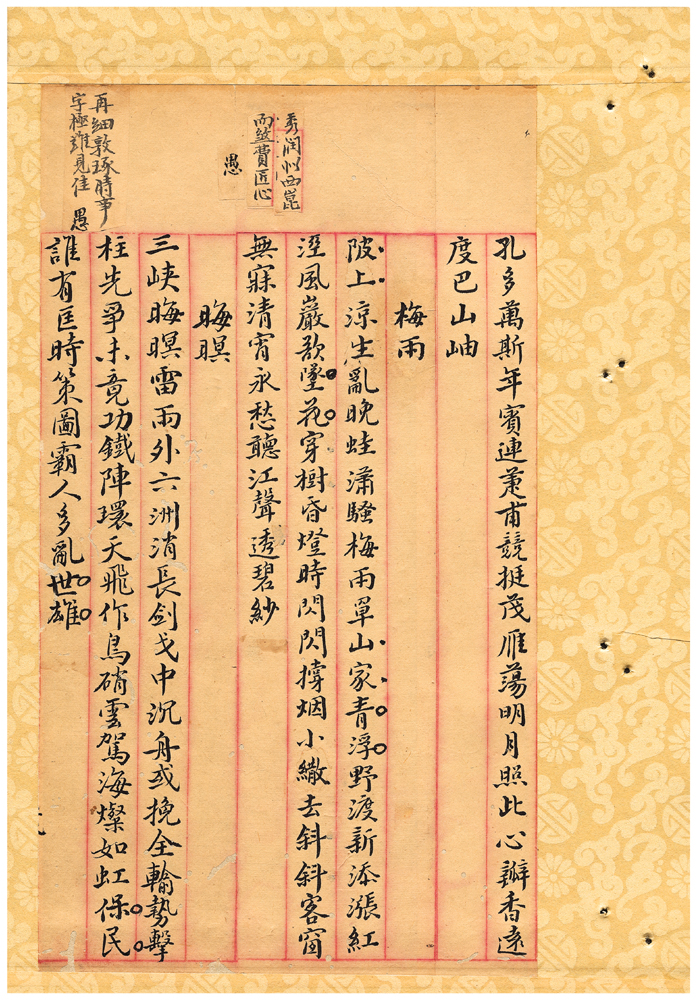 秀润似西崑
而煞費匠心
愚
再細敦琢時事
字極難見佳 愚
孔多萬斯年賓連蓂甫競挺茂雁蕩明月照此心瓣香遠
度巴山岫
梅雨
陂上涼生亂晚蛙瀟騷梅雨單山家青浮野渡新添漲紅
溼風巖欲墜花穿樹昏燈時閃閃撐烟小繖去斜斜客窗
無寐清宵永愁聽江聲透碧紗
晦暝
三峽晦暝雷雨外六洲消長劍戈中沉舟或挽全輸勢擊
柱先爭未竟功鐵陣環天飛作鳥硝雲駕海燦如虹保民
誰有匡時策圖霸人多亂世雄